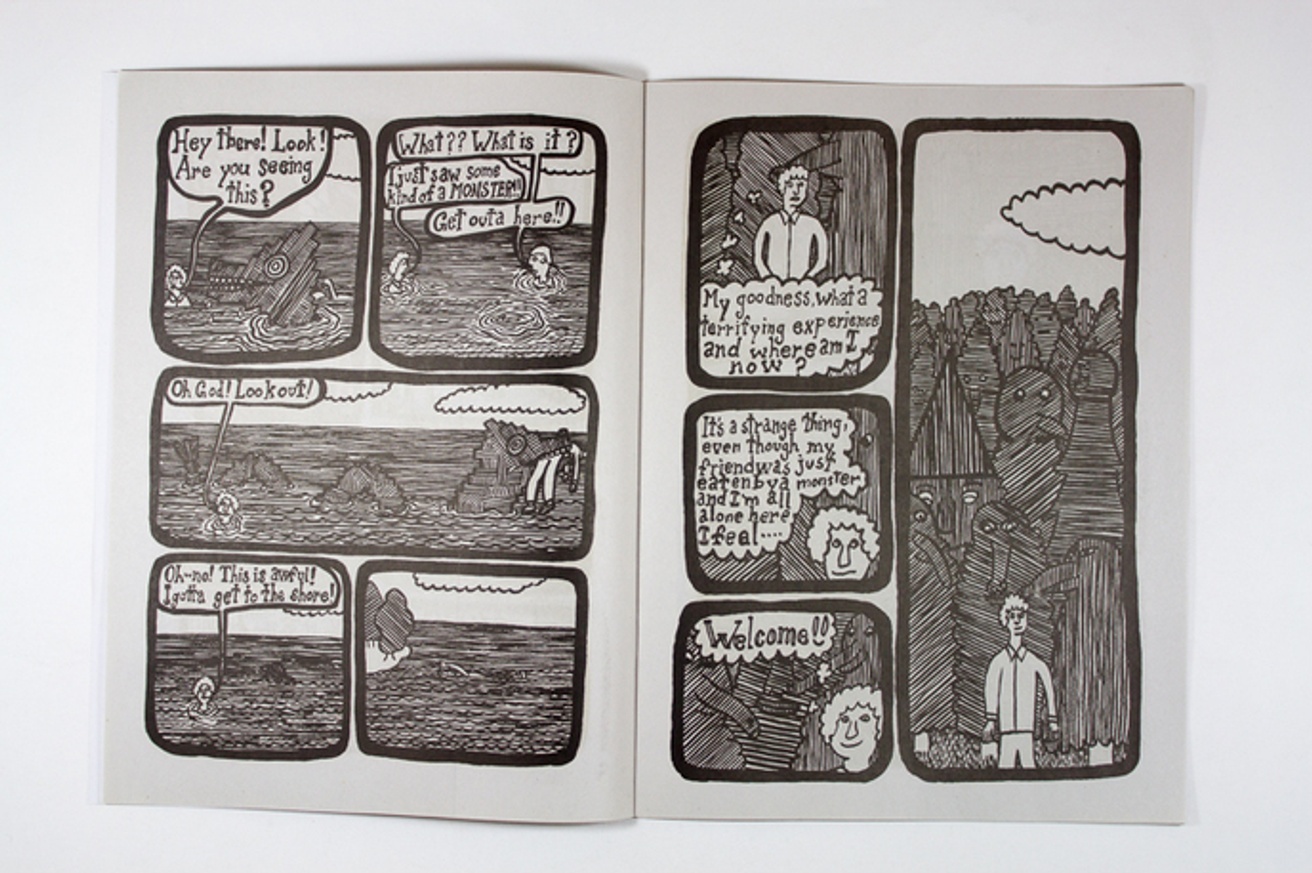 Hey There! Look!
Are you seeing
this?
What?? What is it?
I just saw some
kind of a MONSTER!!!
Get outa here!!
Oh God! Look out!
Oh-no! This is awful!
I gotta get to the shore!
My goodness, what a
terrifying experience
and where am I
now?
It's a strange thing,
even though my
friend was just
eaten by a monster
and I'm all
alone here
I feel....
Welcome!!